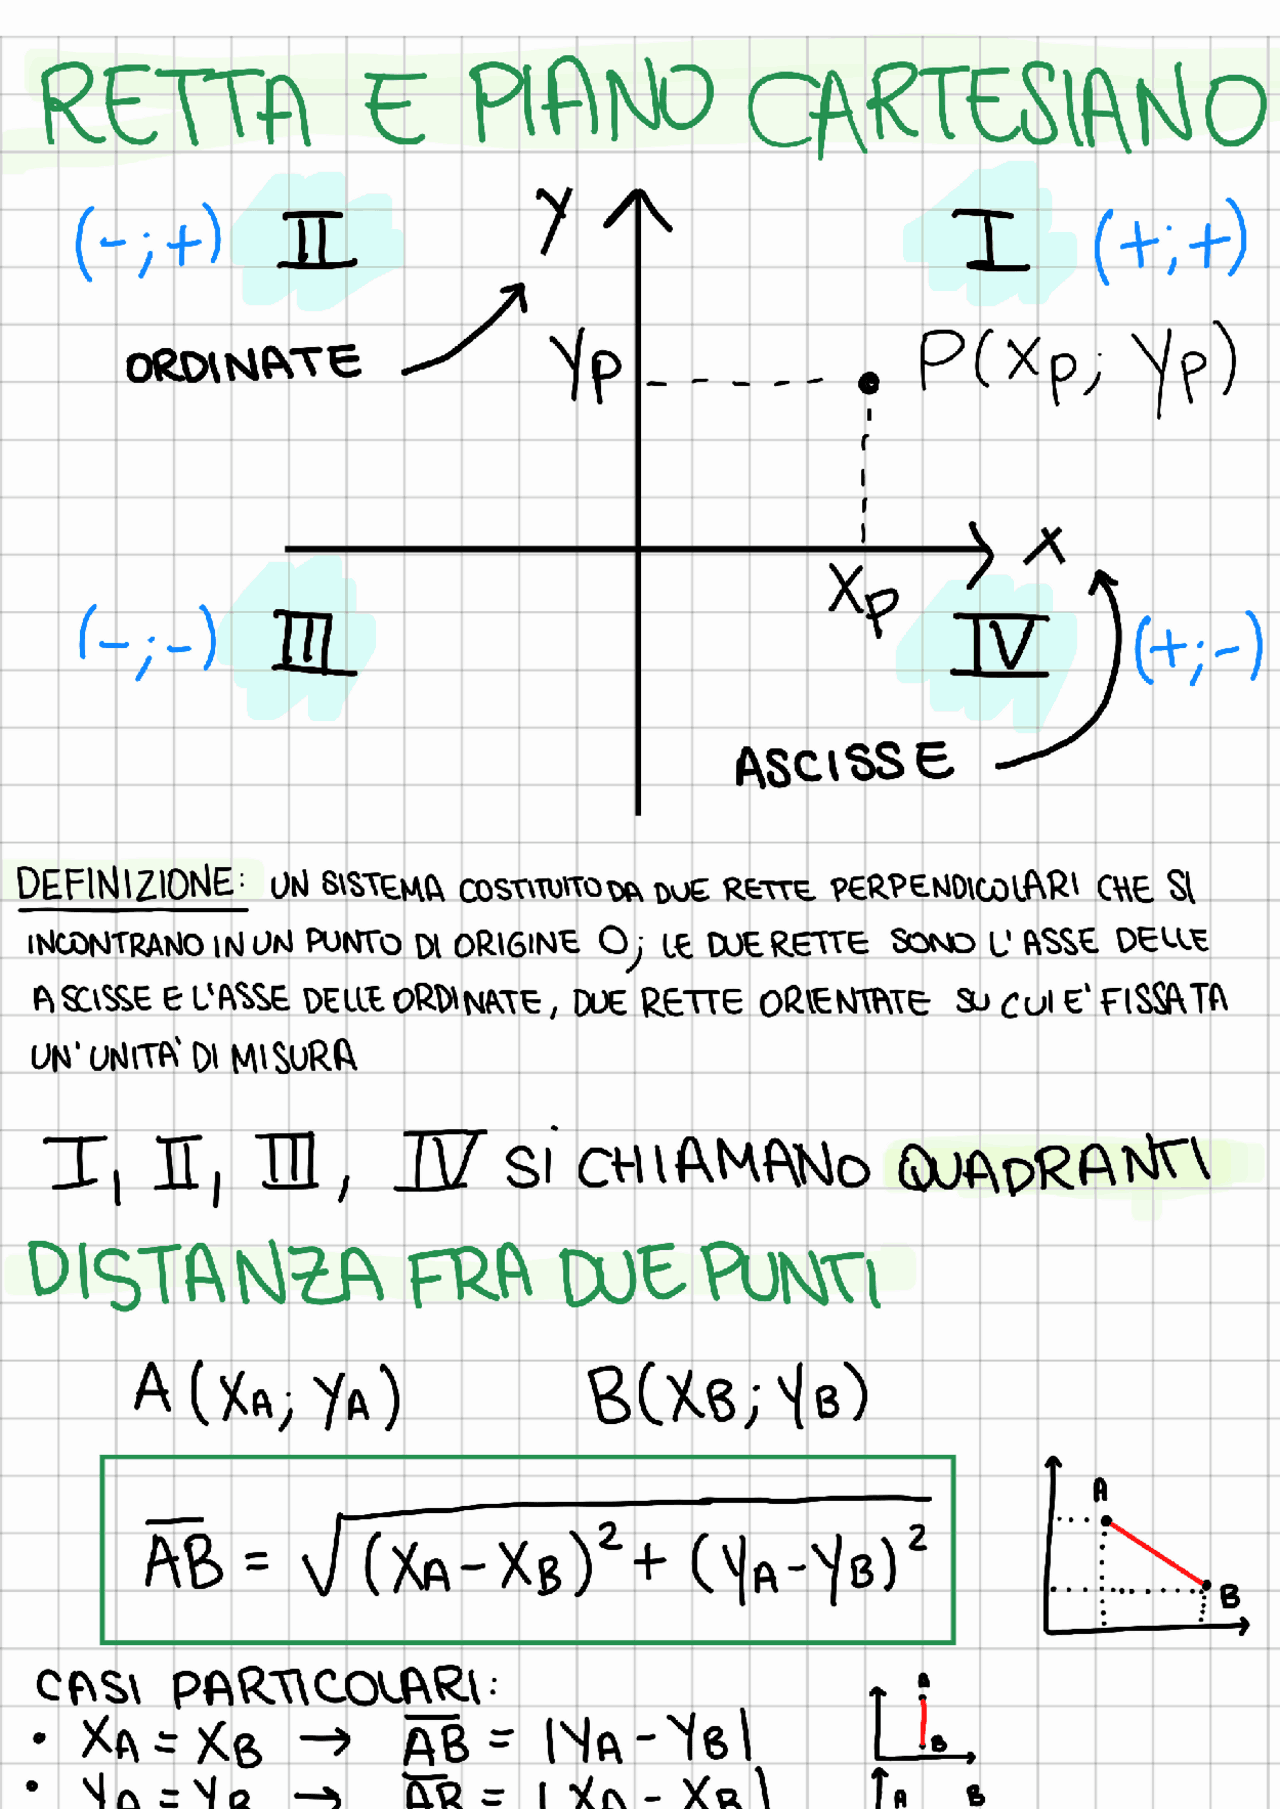 RETTA E PIANO CARTESIANO
(-;+) II y I (+;+)
ORDINATE yP P(xP; yP)
x
xP
(-;-) III IV (+;-)
ASCISSE
DEFINIZIONE: UN SISTEMA COSTITUITO DA DUE RETTE PERPENDICOLARI CHE SI
INCONTRANO IN UN PUNTO DI ORIGINE O; LE DUE RETTE SONO L'ASSE DELLE
ASCISSE E L'ASSE DELLE ORDINATE, DUE RETTE ORIENTATE SU CUI E' FISSATA
UN'UNITA' DI MISURA
I, II, III, IV SI CHIAMANO QUADRANTI
DISTANZA FRA DUE PUNTI
A(xA; yA) B(xB; yB)
A
AB = √(xA-xB)² + (yA-yB)²
B
CASI PARTICOLARI:
A
• xA = xB → AB = |yA - yB|
B
• yA = yB → AB = |xA - xB|
A B